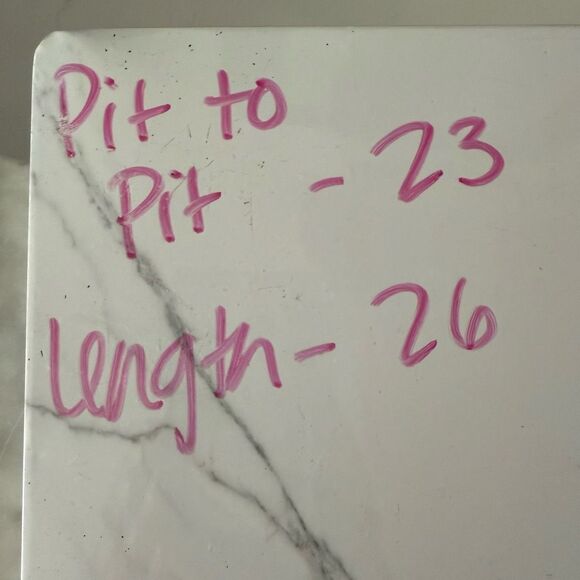 Pit to
Pit - 23
Length - 26